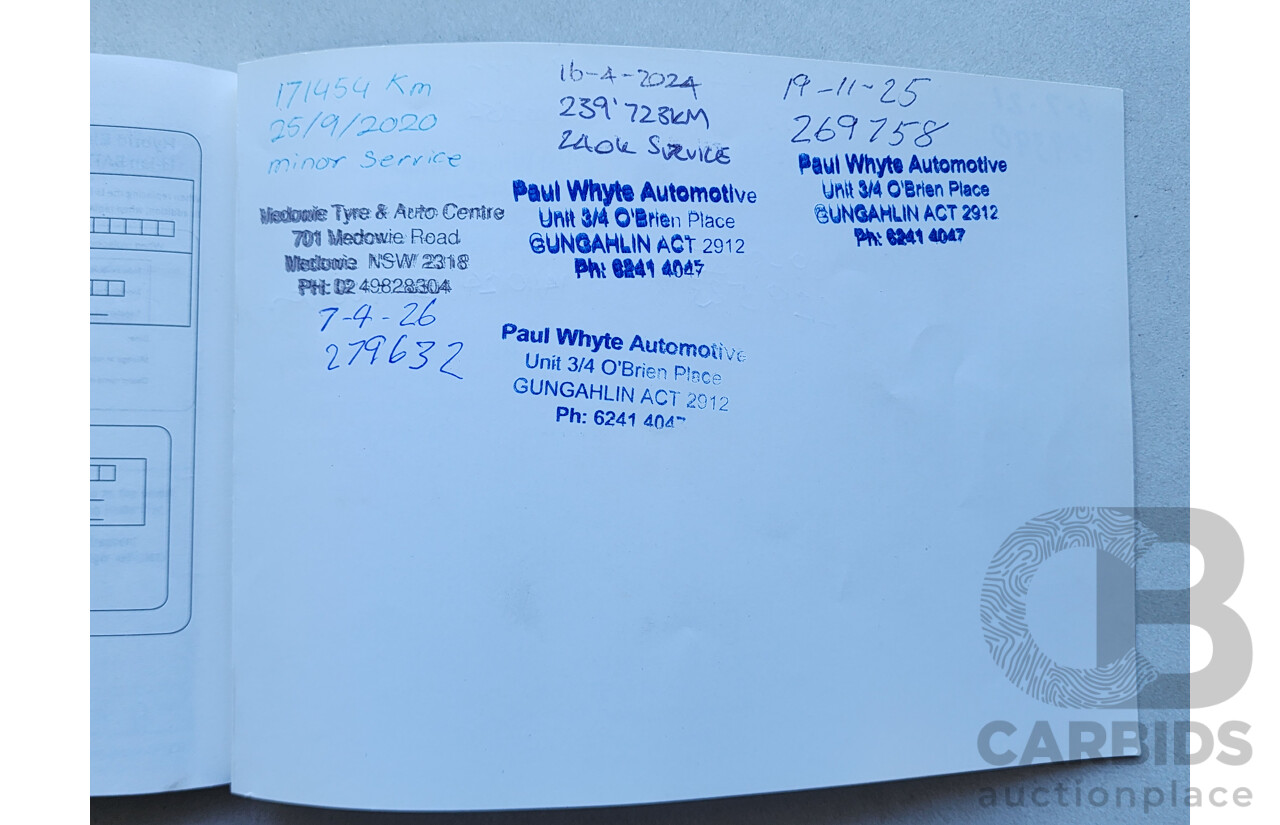 171454 Km
25/9/2020
minor service
Medowie Tyre & Auto Centre
701 Medowie Road
Medowie NSW 2318
PH: 02 49828304
16-4-2024
239'723KM
240k SERVICE
Paul Whyte Automotive
Unit 3/4 O'Brien Place
GUNGAHLIN ACT 2912
Ph: 6241 4047
19-11-25
269758
Paul Whyte Automotive
Unit 3/4 O'Brien Place
GUNGAHLIN ACT 2912
Ph: 6241 4047
7-4-26
279632
Paul Whyte Automotive
Unit 3/4 O'Brien Place
GUNGAHLIN ACT 2912
Ph: 6241 4047
CARBIDS
auctionplace